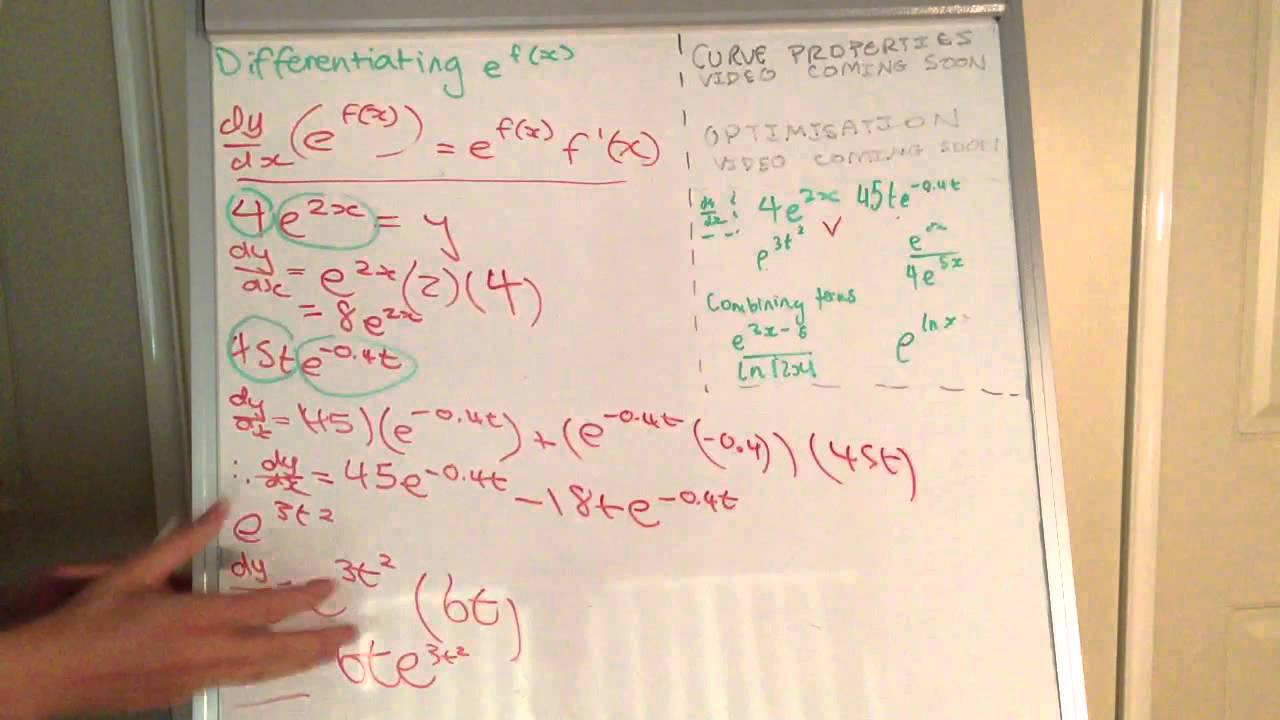 Differentiating e^f(x)
dy/dx (e^f(x)) = e^f(x) f'(x)
4e^2x = y
dy/dx = e^2x (2)(4)
= 8e^2x
45te^-0.4t
dy/dt = (45)(e^-0.4t) + (e^-0.4t (-0.4))(45t)
∴ dy/dt = 45e^-0.4t - 18te^-0.4t
e^3t^2
dy = e^3t^2 (6t)
6te^3t^2
CURVE PROPERTIES
VIDEO COMING SOON
OPTIMISATION
VIDEO COMING SOON
dy/dx : 4e^2x 45te^-0.4t
e^3t^2 ✓
4e^5x
Combining terms
e^lnx